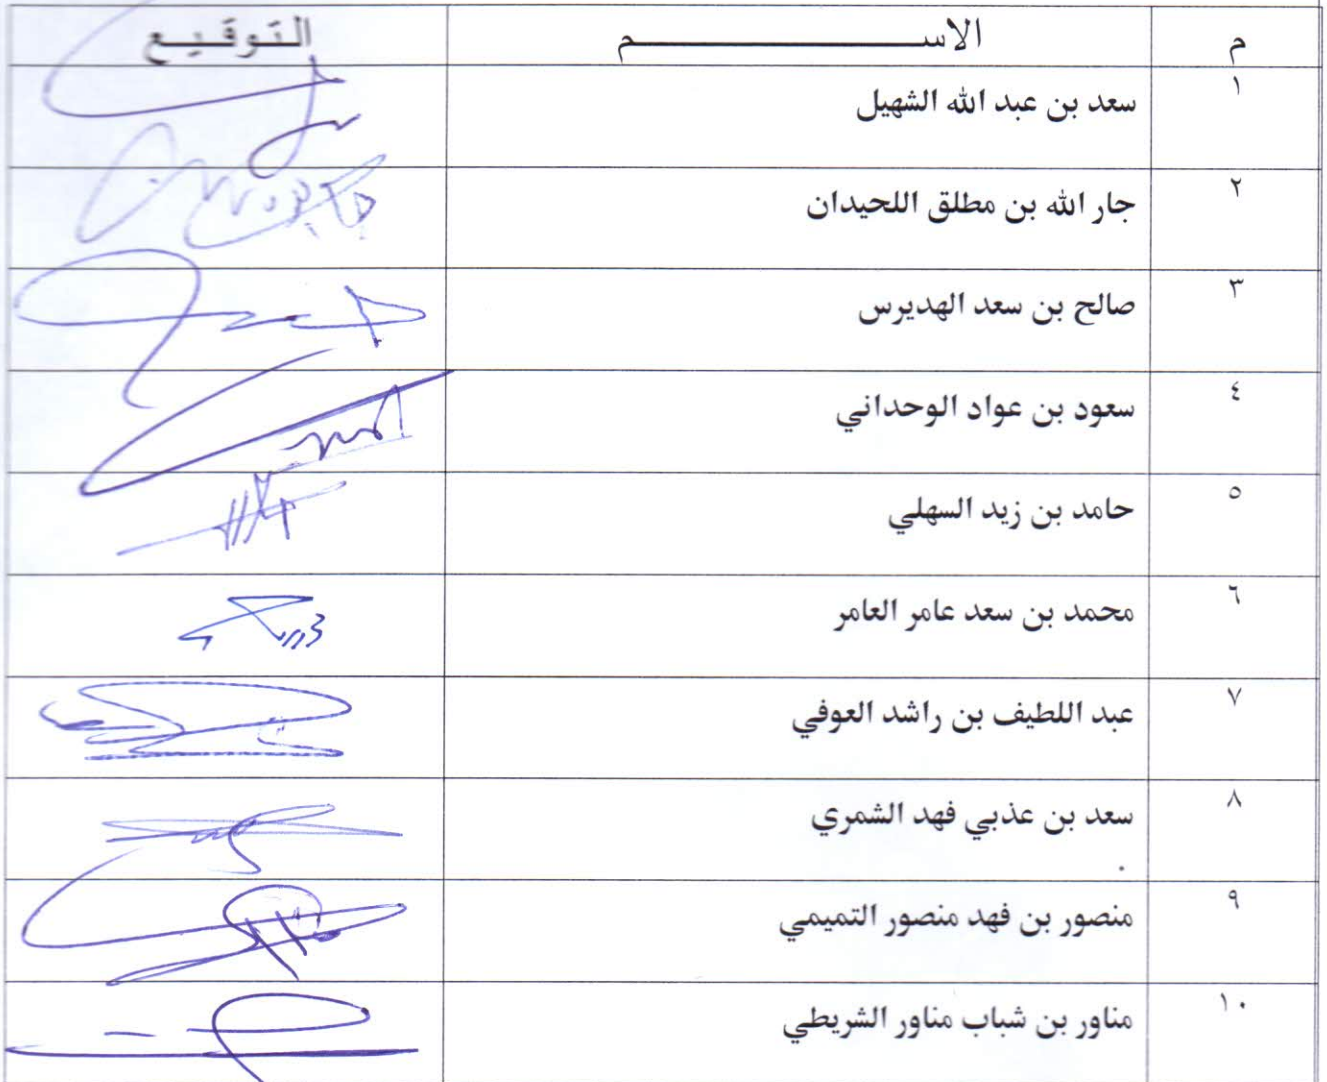 م الاســـــــــم التوقيع
١ سعد بن عبد الله الشهيل
٢ جار الله بن مطلق اللحيدان
٣ صالح بن سعد الهديرس
٤ سعود بن عواد الوحداني
٥ حامد بن زيد السهلي
٦ محمد بن سعد عامر العامر
٧ عبد اللطيف بن راشد العوفي
٨ سعد بن عذبي فهد الشمري
٩ منصور بن فهد منصور التميمي
١٠ مناور بن شباب مناور الشريطي